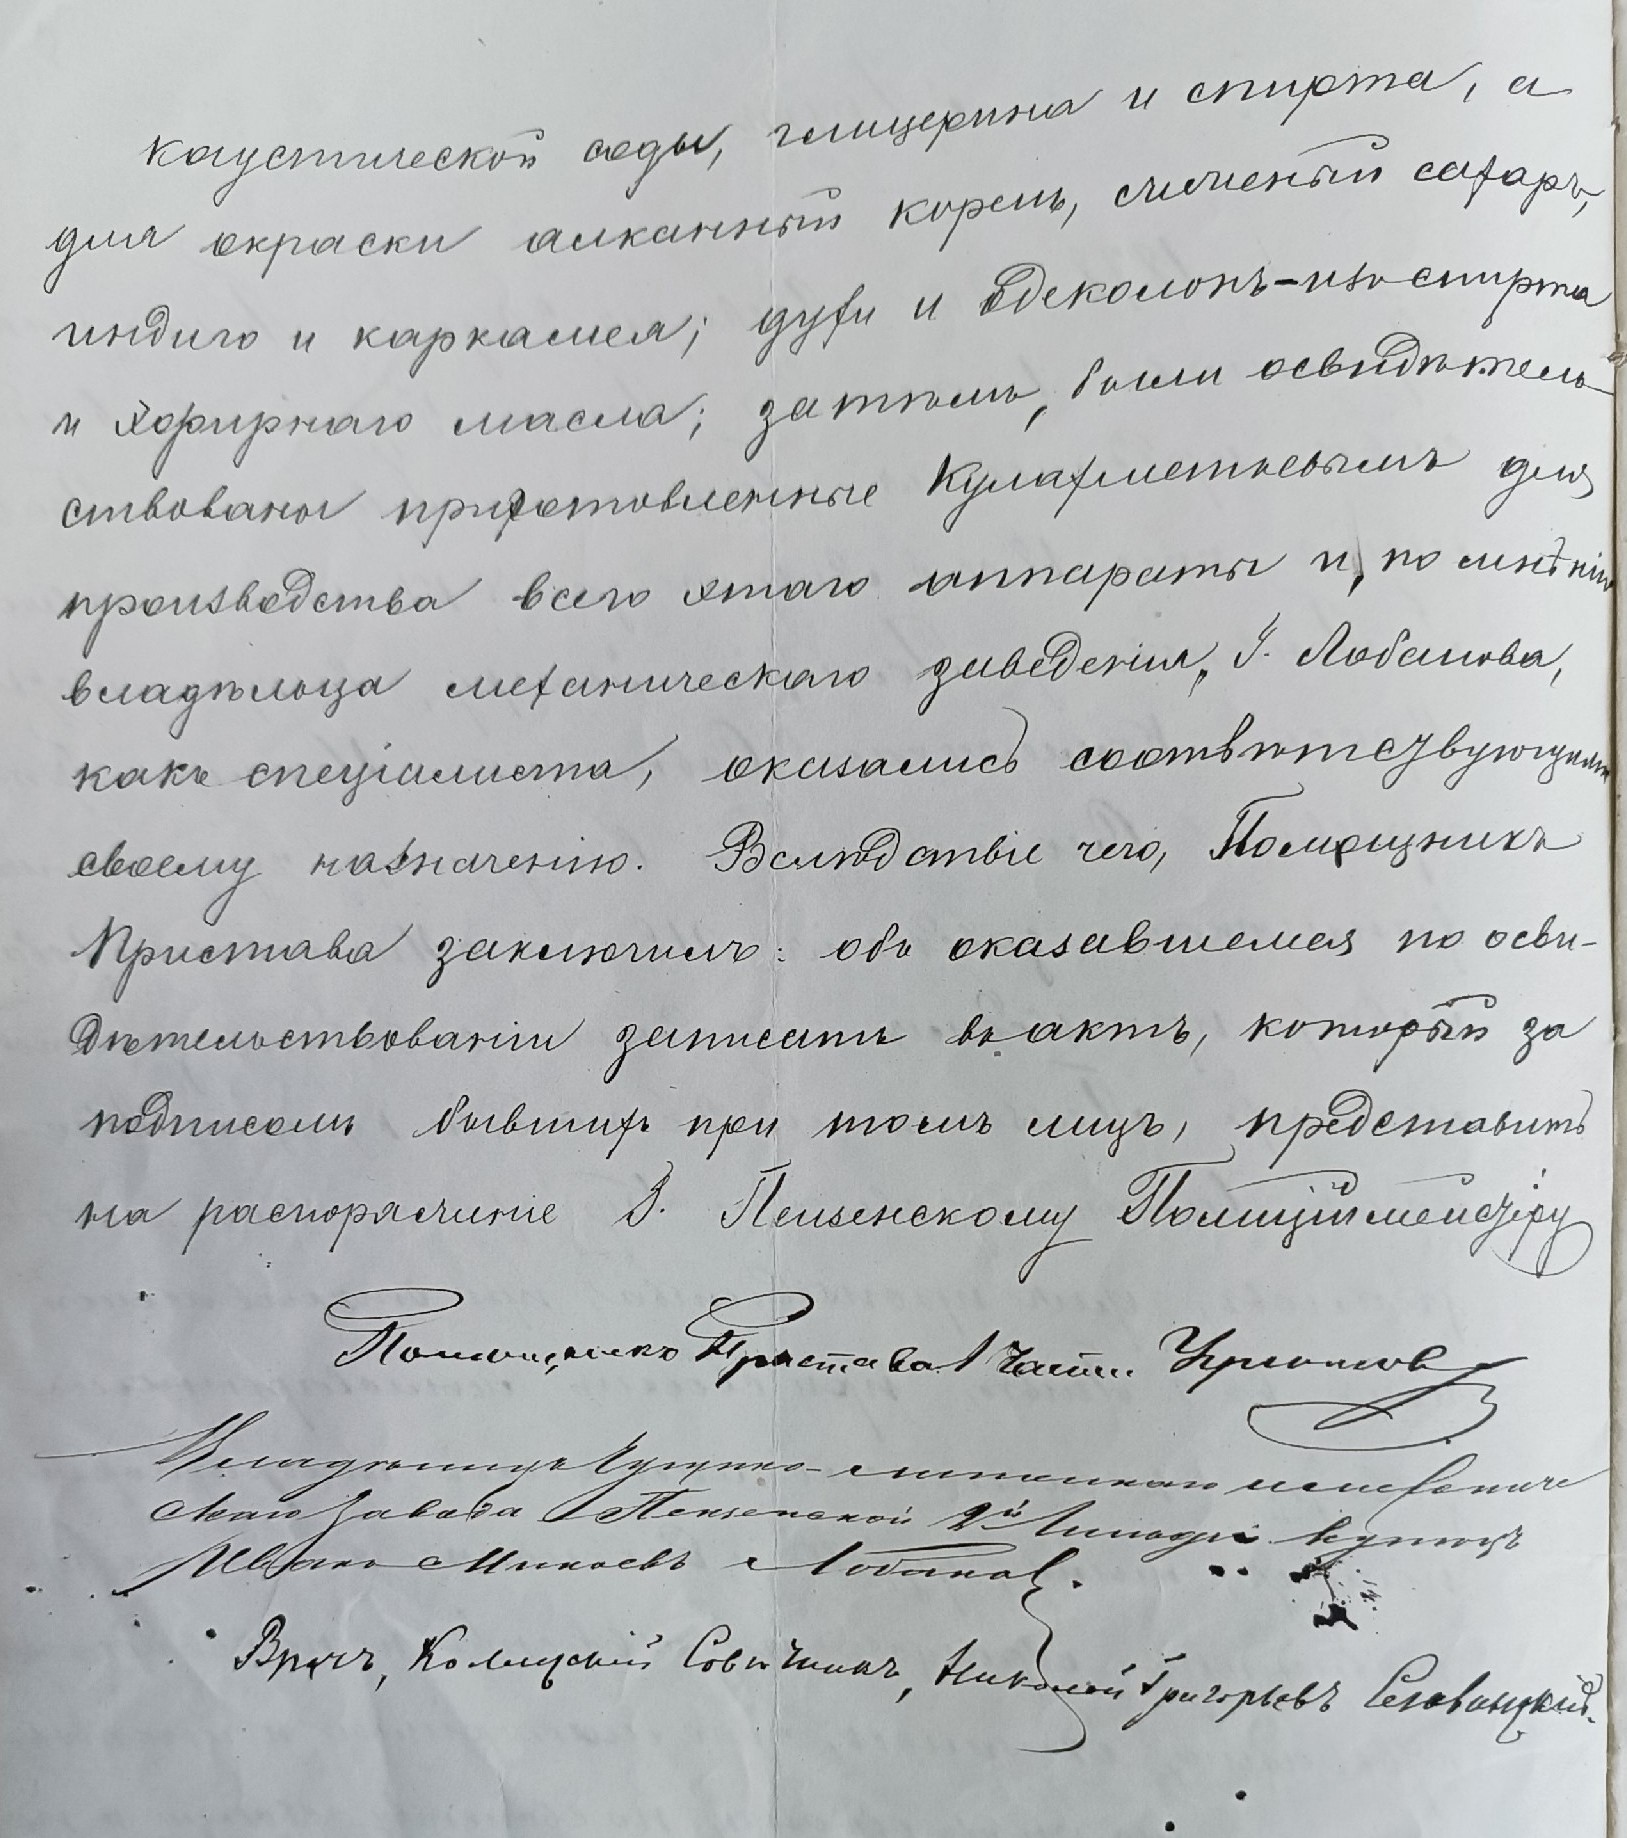 каустической соды, глицерина и спирта, а
для окраски алканный корень, сженый сахаръ,
индиго и каркамея; духи и одеколонъ-изъ спирта
и эфирнаго масла; затѣмъ, были освидѣтель-
ствованы приготовленные Кулахметьевымъ для
производства всего этаго аппараты и, по мнѣнію
владѣльца механическаго заведенія, Г. Лобанова,
какъ спеціалиста, оказались соотвѣтствующими
своему назначенію. Вслѣдствіе чего, Помощникъ
Пристава заключилъ: объ оказавшемся по осви-
дѣтельствованіи записать въ актъ, который за
подписомъ бывшихъ при томъ лицъ, представить
на распоряженіе Г. Пензенскому Полиціймейстеру
Помощникъ Пристава 1 Части
Владѣлецъ Чугунно-литейнаго механиче
скаго Завода Пензенской 2й Гильдіи купецъ
Иванъ Минаевъ Лобановъ.
Врачъ, Колл­ежскій Совѣтникъ, Николай Григорьевъ